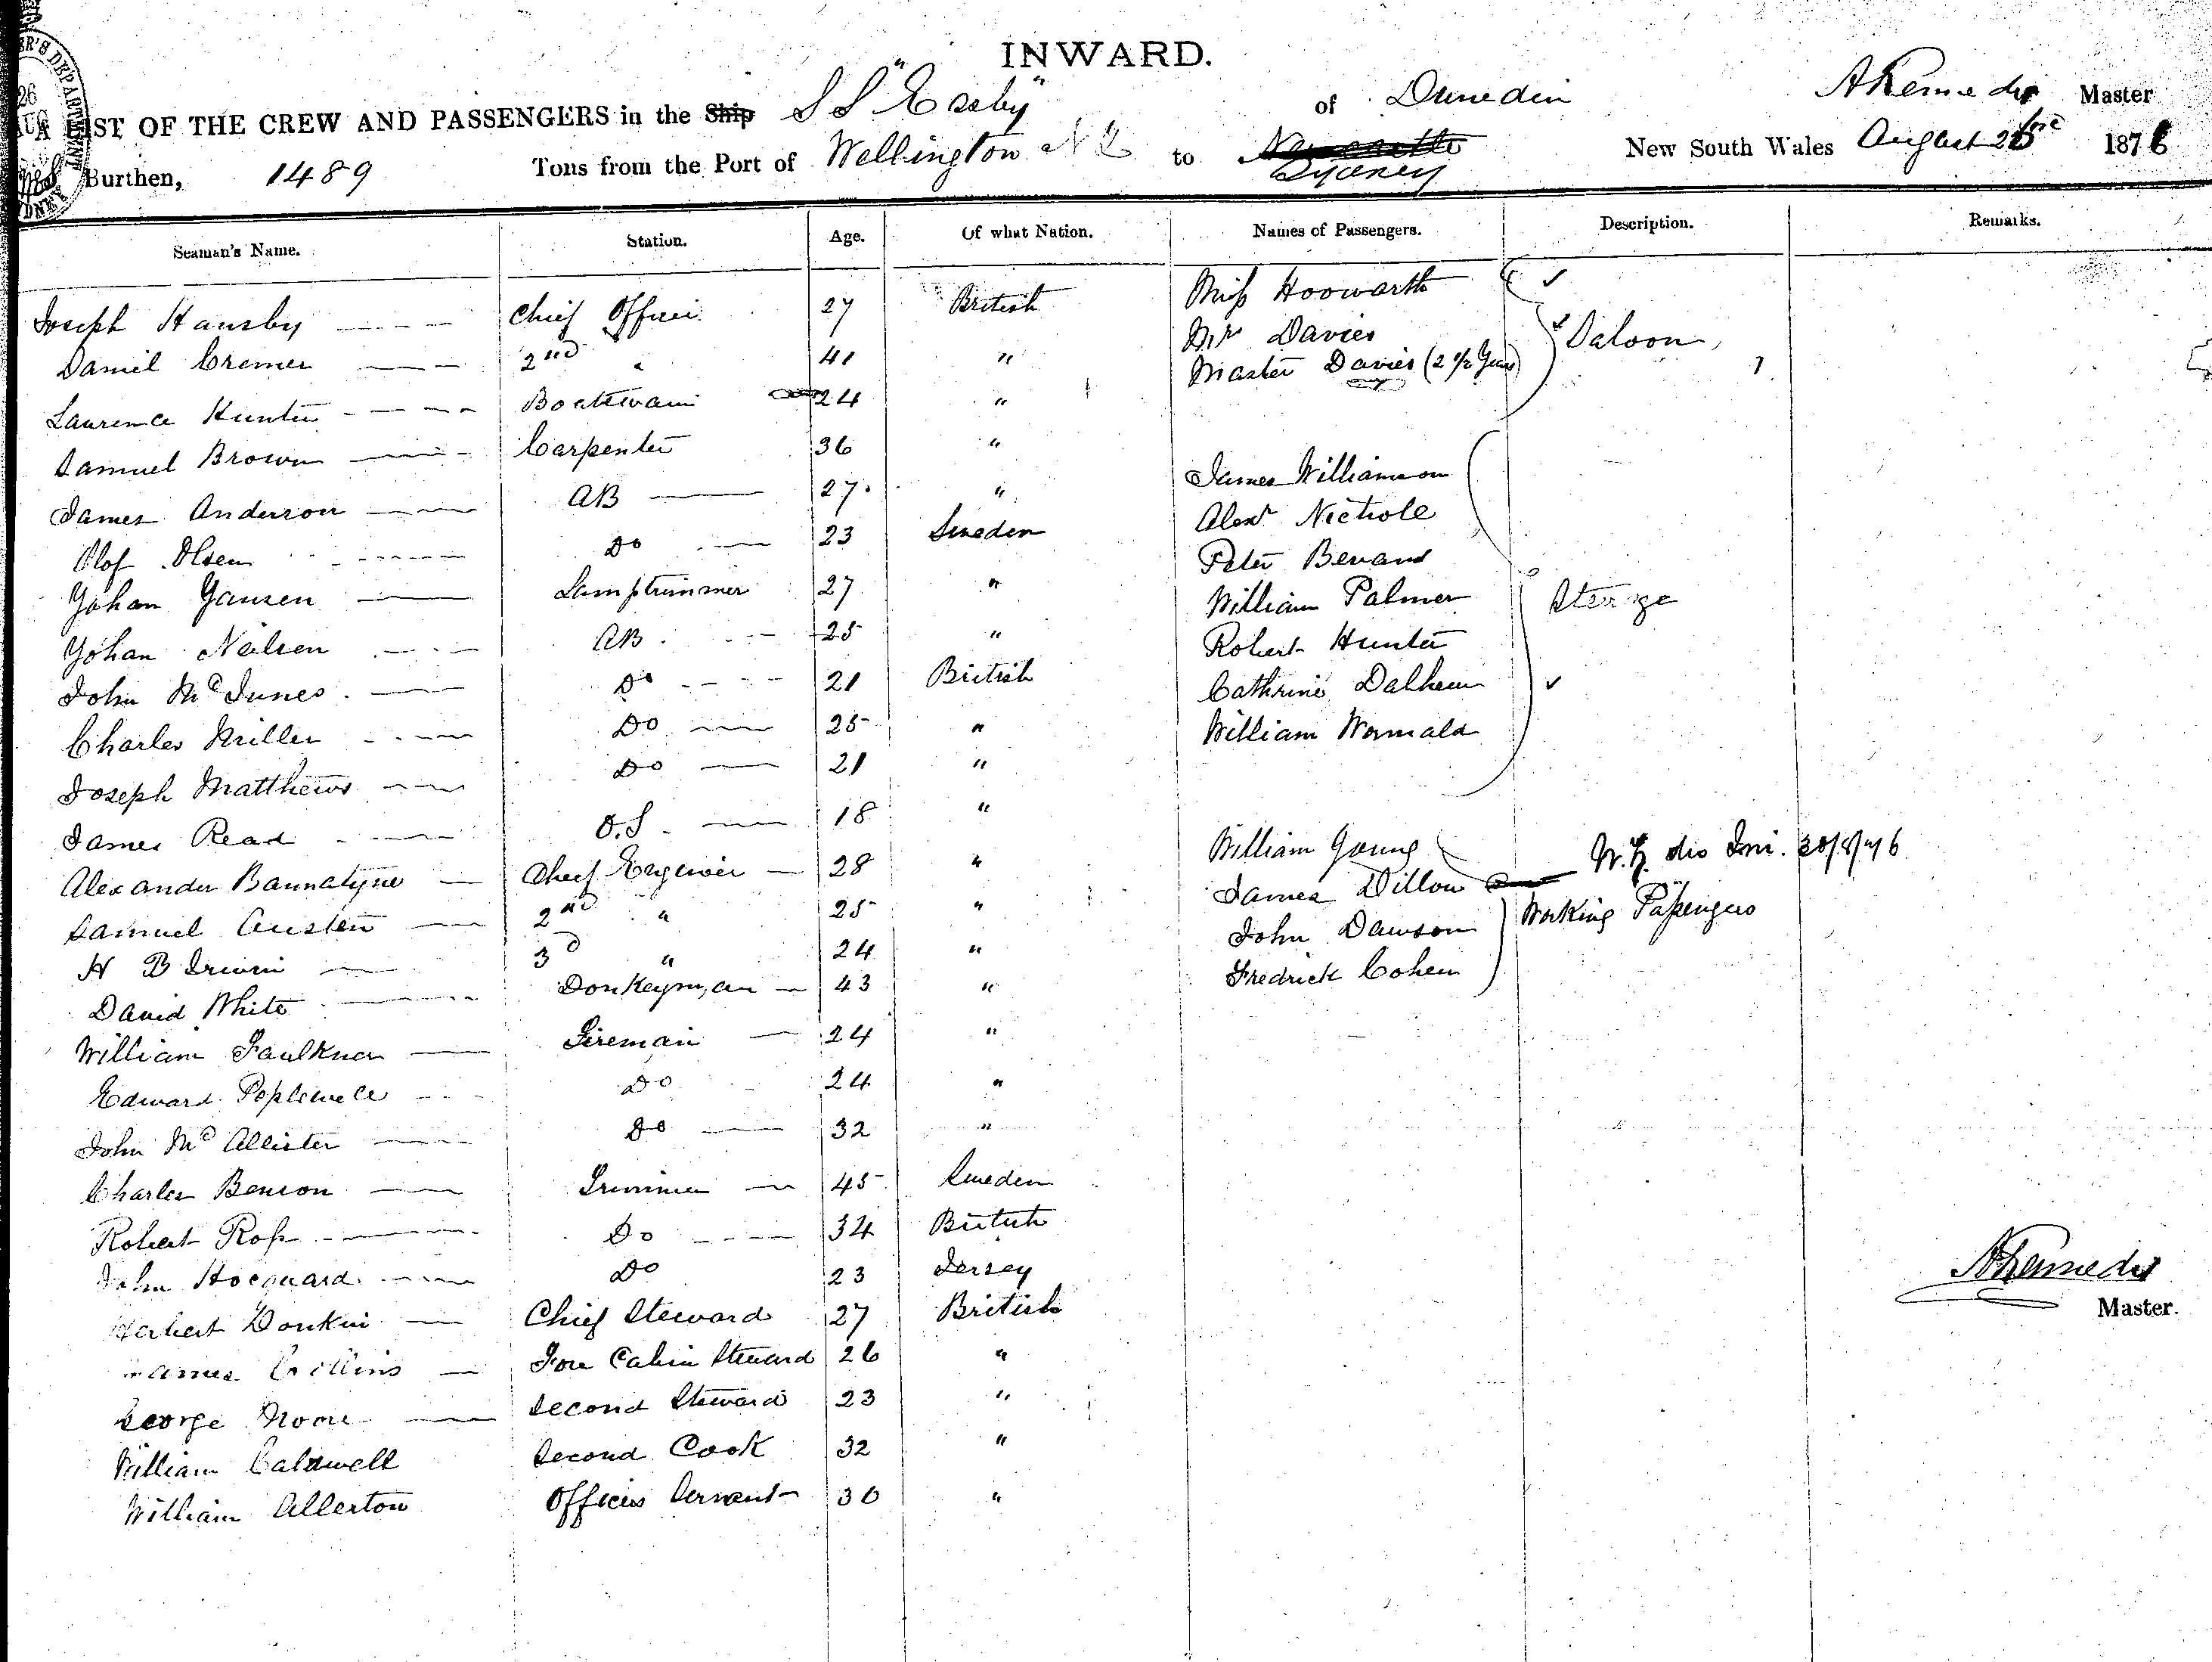 INWARD.
LIST OF THE CREW AND PASSENGERS in the Ship S S "Easby" of Dunedin A Kennedy Master
Burthen, 1489 Tons from the Port of Wellington N Z to Newcastle Sydney New South Wales August 1876
Seaman's Name. Station. Age. Of what Nation. Names of Passengers. Description. Remarks.
Joseph Hansby Chief Officer 27 British Miss Hooworth
Daniel Cremer 2nd " 41 " Mr Davies Saloon
Laurence Hunter Boatswain 24 " Master Davies (2 1/2 Years)
Samuel Brown Carpenter 36 "
James Anderson AB 27 " James Williamson
Olof Olsen Do 23 Sweden Alexr Nichole
Yohan Yansen Lamptrimmer 27 " Peter Bevand
Yohan Neilsen AB 25 " William Palmer Sterage
John McInnes Do 21 British Robert Hunter
Charles Miller Do 25 " Cathrine Dalheim
Joseph Matthews Do 21 " William Wormald
James Read O.S 18 "
Alexander Bannatyne Chief Engineer 28 " William Young
Samuel Austen 2nd " 25 " James Dillon
H B Irwin 3d " 24 " John Dawson Working Passengers
David White Donkeyman 43 " Fredrick Cohen
William Faulkner Fireman 24 "
Edward Poplewell Do 24 "
John McAllister Do 32 "
Charles Benson Trimmer 45 Sweden
Robert Ross Do 34 British
John Hocquard Do 23 Jersey
Herbert Donkin Chief Steward 27 British
James Collins Fore Cabin Steward 26 "
George Moore Second Steward 23 "
William Caldwell Second Cook 32 "
William Allerton Officers Servant 30 "
A Kennedy
Master.